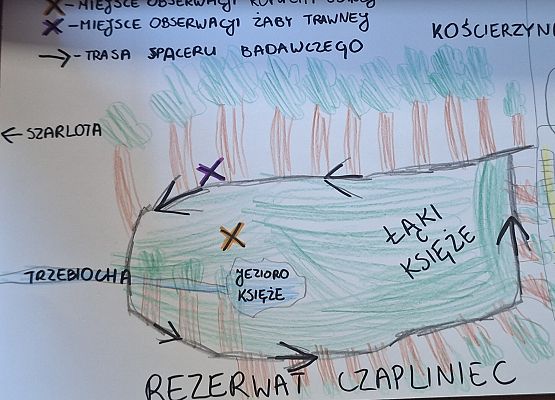 - MIEJSCE OBSERWACJI
X - MIEJSCE OBSERWACJI ŻABY TRAWNEJ
→ - TRASA SPACERU BADAWCZEGO
KOŚCIERZYN
← SZARLOTA
ŁĄKI
KSIĘŻE
TRZEBIOCHA
JEZIORO
KSIĘŻE
REZERWAT CZAPLINIEC